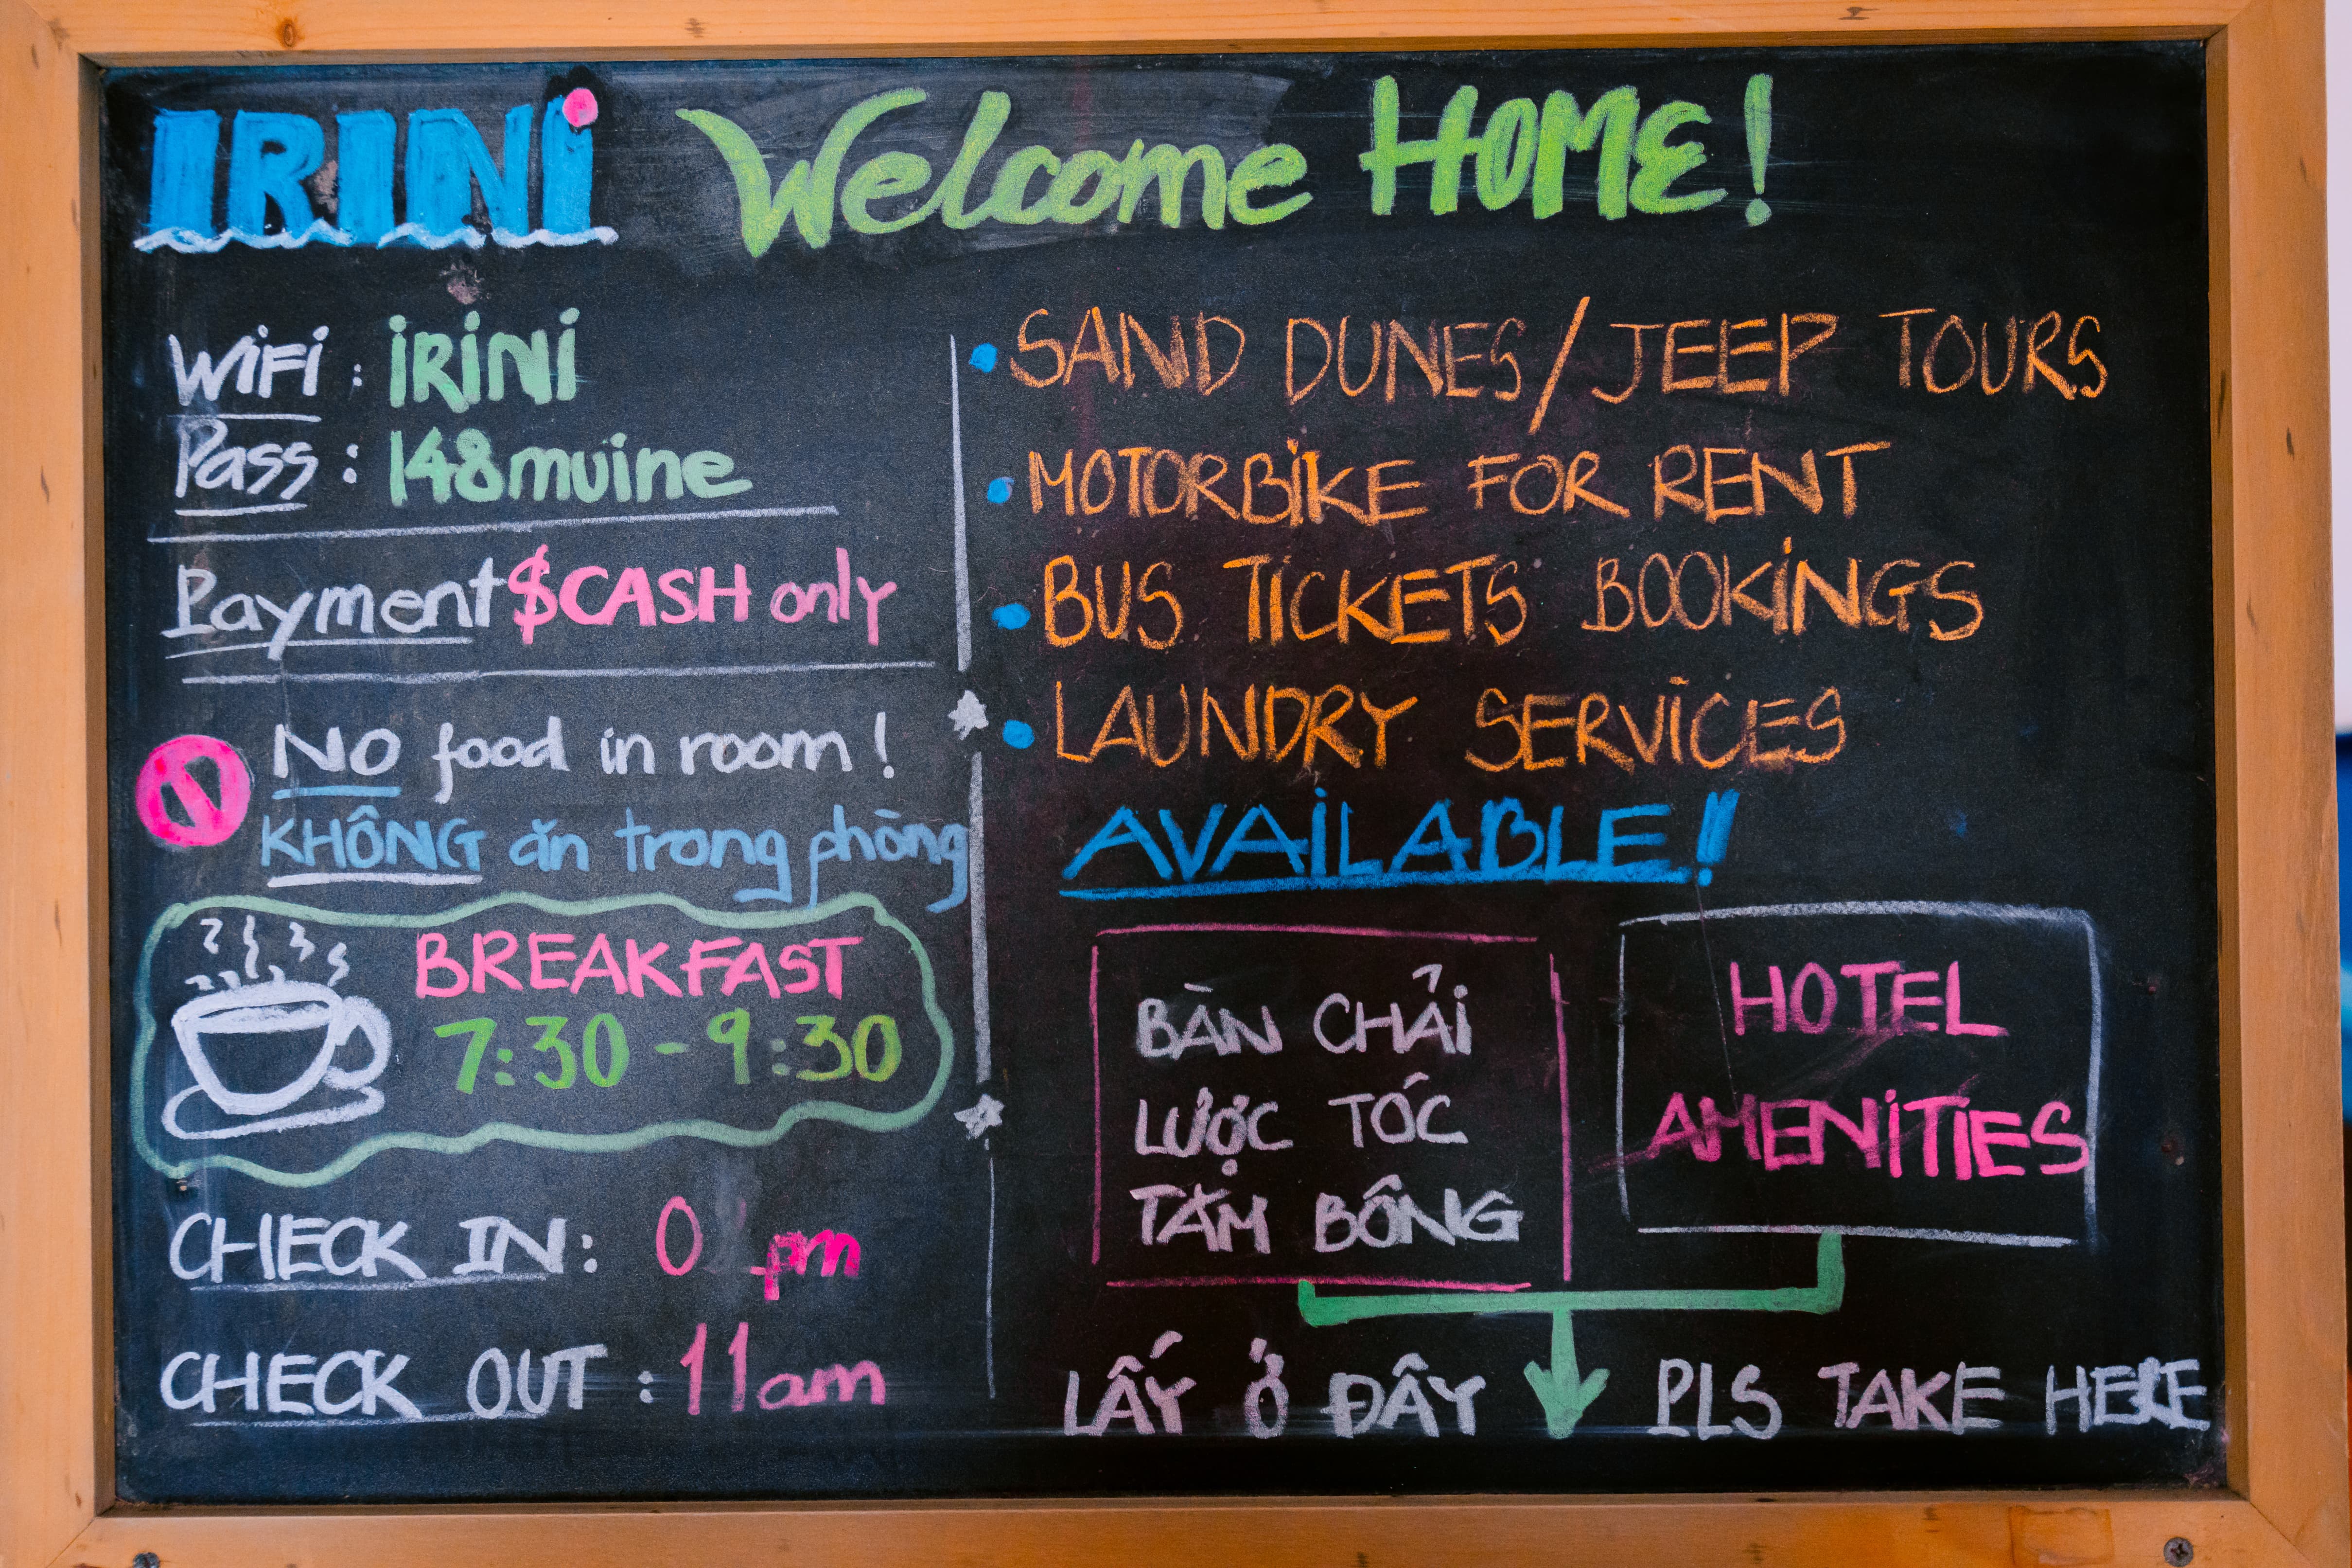 IRINI Welcome HOME!
WiFi : IRINI
Pass : 148muine
Payment $CASH only
NO food in room!
KHÔNG ăn trong phòng
BREAKFAST
7:30 - 9:30
CHECK IN: pm
CHECK OUT : 11am
• SAND DUNES/JEEP TOURS
• MOTORBIKE FOR RENT
• BUS TICKETS BOOKINGS
• LAUNDRY SERVICES
AVAILABLE!!
BÀN CHẢI
LƯỢC TÓC
TĂM BÔNG
HOTEL
AMENITIES
LẤY Ở ĐÂY
PLS TAKE HERE